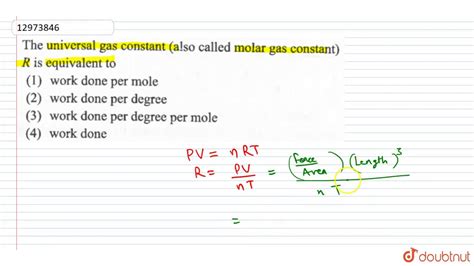 12973846
The universal gas constant (also called molar gas constant)
R is equivalent to
(1) work done per mole
(2) work done per degree
(3) work done per degree per mole
(4) work done
PV = nRT
R = PV/nT = (Force/Area) (Length)³/n T
=
doubtnut